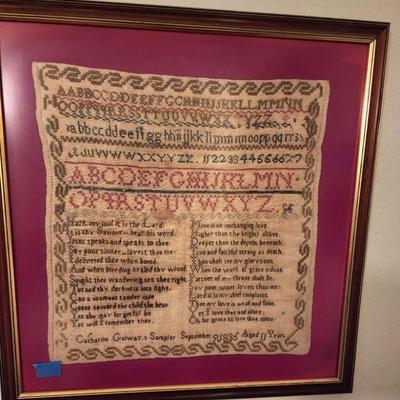 AABBCCDDEEFFGGHHIIJKKLLMMNN
OOPPQQRRSSTTUUVWWXXYZ
abbccddeeffgghhiijjkkllmmnnooppqqrrs
tuUVWWXXYYZZ 1122334455667
ABCDEFGHIJKLMN
OPQRSTUVWXYZ
Hark my soul it is the Lord
It is thy Saviour hear his word
Jesus speaks and speaks to thee
Say poor sinner lovest thou me
I delivered thee when bound
And when bleeding healed thy wound
Sought thee wandering set thee right
Turned thy darkness into light
Can a womans tender care
Cease toward the child she bear
Yes she may forgetful be
Yet will I remember thee
Mine is an unchanging love
Higher than the heights above
Deeper than the depths beneath
Free and faithful strong as death
Thou shalt see my glory soon
When the work of grace is done
Partner of my throne shalt be
Say poor sinner lovest thou me
Lord it is my chief complaint
That my love is weak and faint
Yet I love thee and adore
Oh for grace to love thee more
Catharine Galway,s Sampler September 9 1835 Aged 11 Years